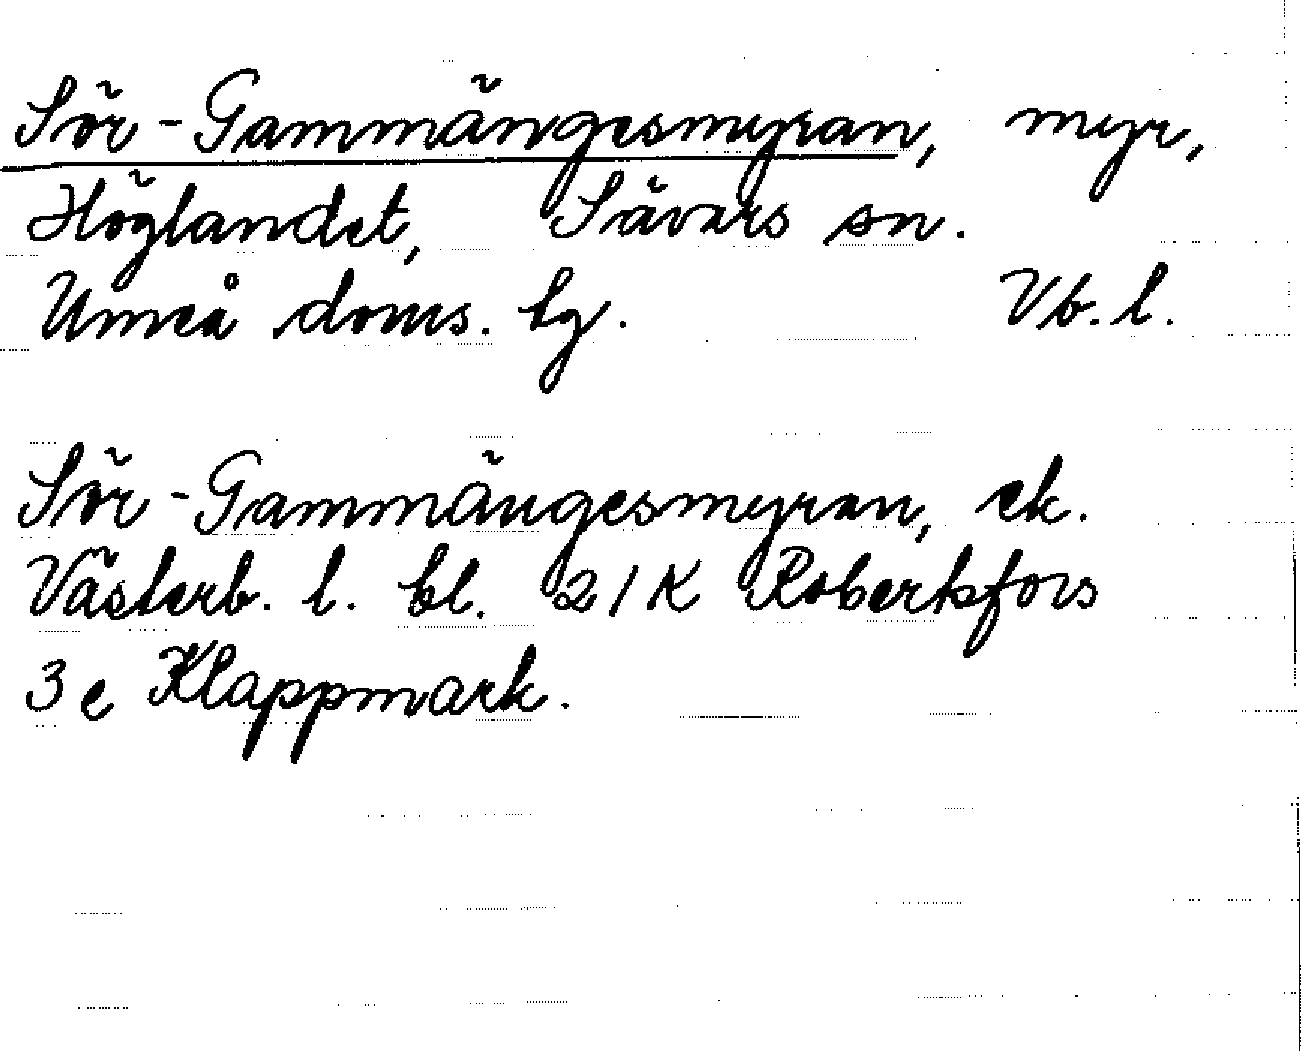 Sör-Gammängesmyran, myr,
Höglandet, Sävars sn.
Umeå doms. lg. Vb. l.
Sör-Gammängesmyran, ek.
Västerb. l. bl. 21K Robertsfors
3 e Klappmark.